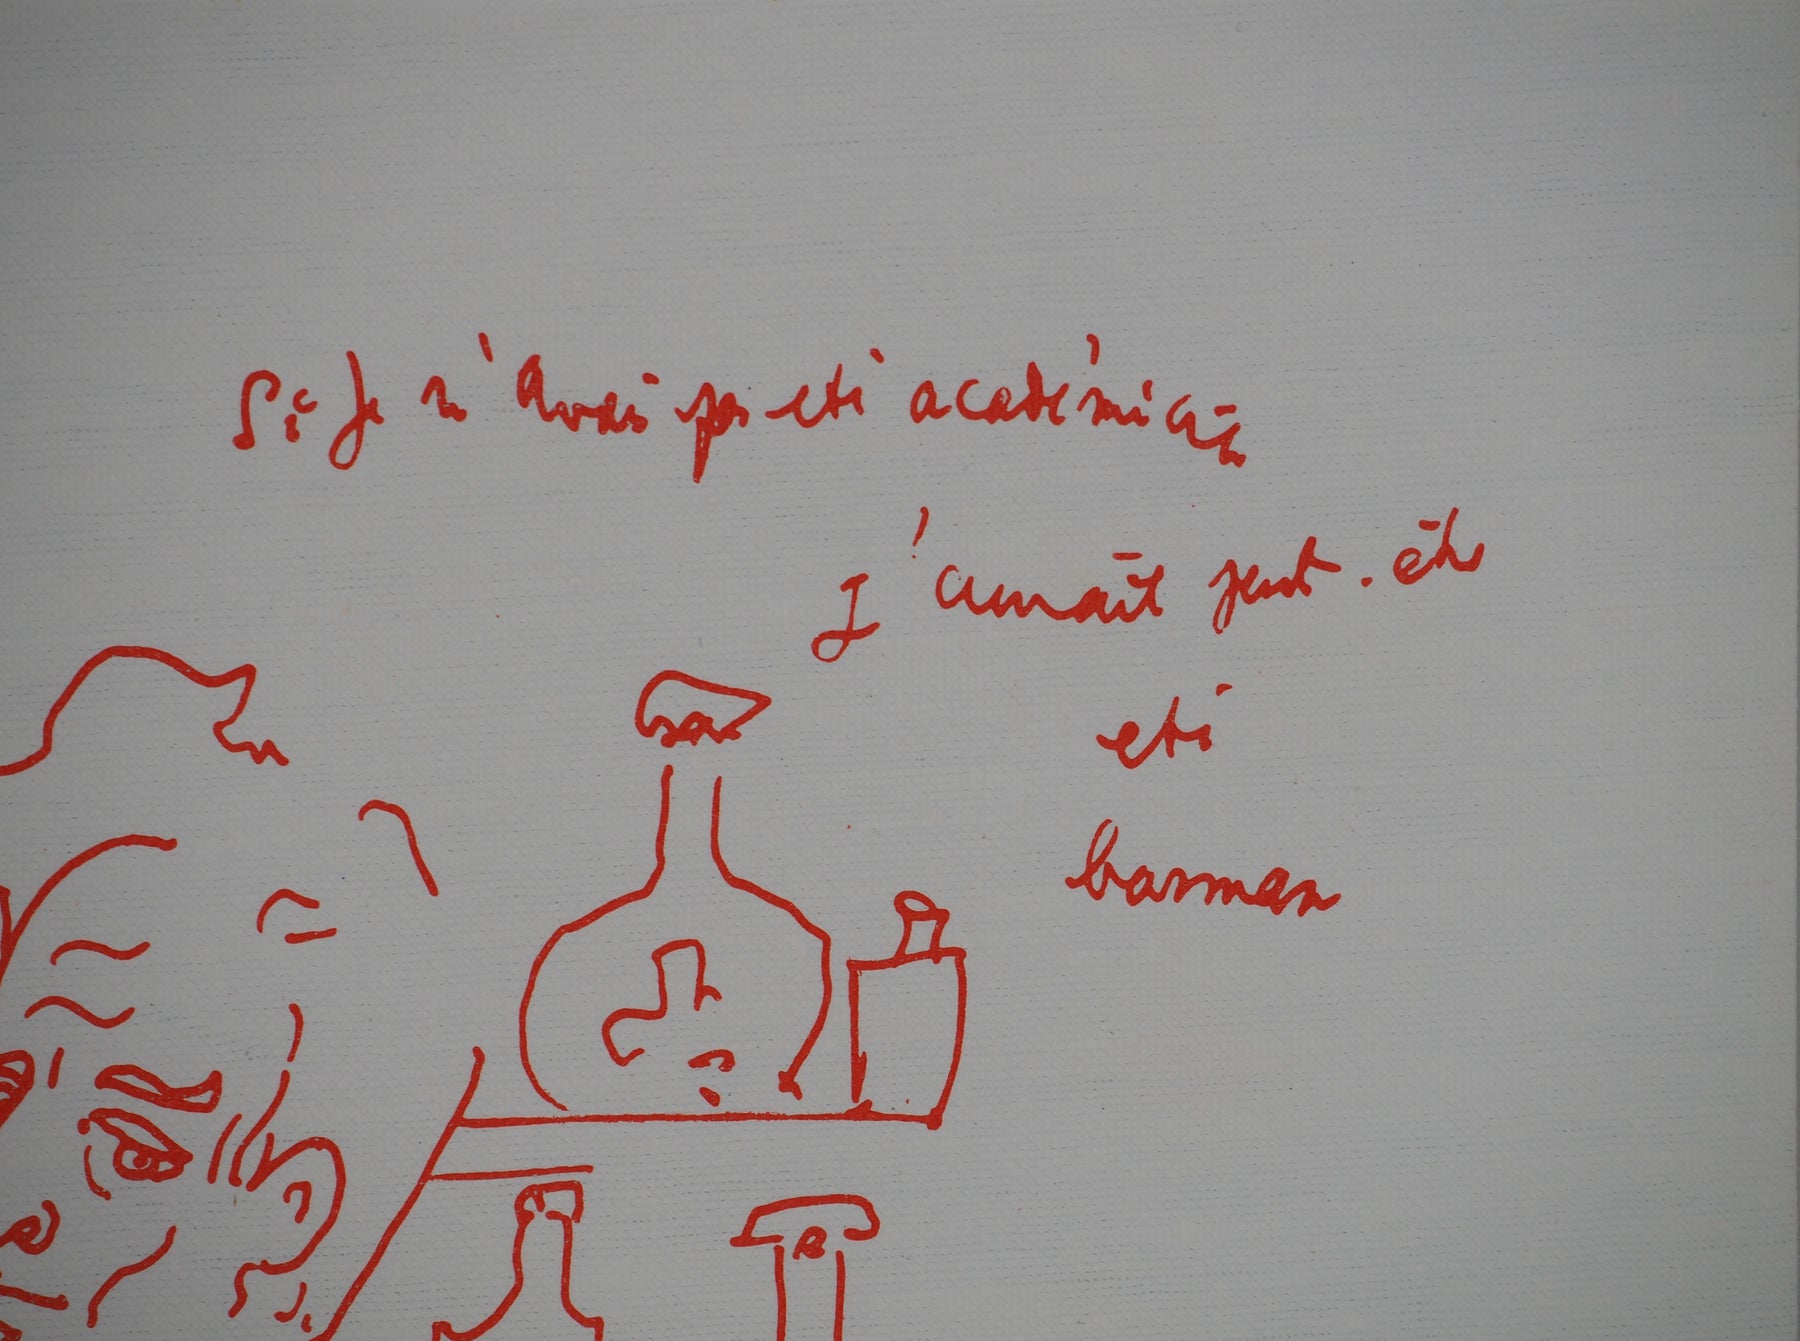 Si je n'avais pas eté académicien
j'aurait peut-être
eté
barman